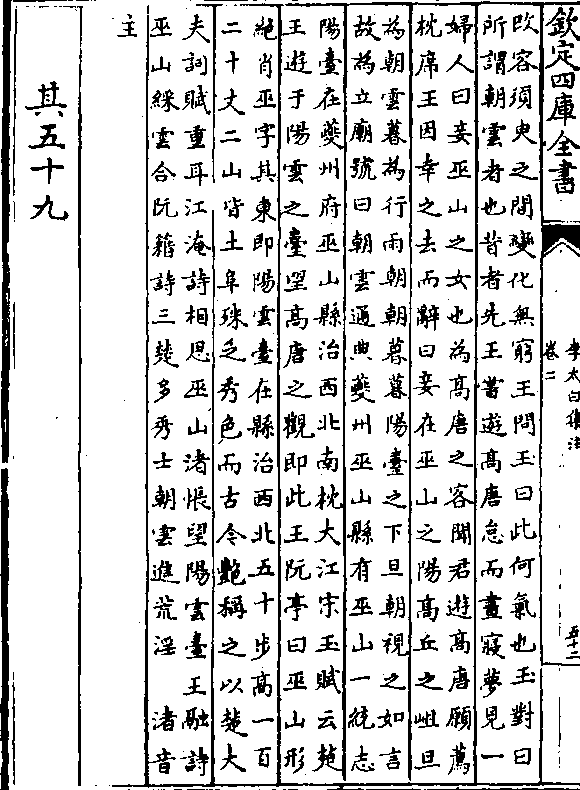 欽定四庫全書
李太白集注
卷二
五十二
改容須臾之間變化無窮王問玉曰此何氣也玉對曰
所謂朝雲者也昔者先王嘗遊髙唐怠而晝寢夢見一
婦人曰妾巫山之女也為髙唐之客聞君遊髙唐願薦
枕席王因幸之去而辭曰妾在巫山之陽髙丘之岨旦
為朝雲暮為行雨朝朝暮暮陽臺之下旦朝視之如言
故為立廟號曰朝雲通典夔州巫山縣有巫山一統志
陽臺在夔州府巫山縣治西北南枕大江宋玉賦云楚
王遊于陽雲之臺望髙唐之觀即此王阮亭曰巫山形
絶肖巫字其東即陽雲臺在縣治西北五十步髙一百
二十丈二山皆土阜殊乏秀色而古今艷稱之以楚大
夫詞賦重耳江淹詩相思巫山渚悵望陽雲臺王融詩
巫山綵雲合阮籍詩三楚多秀士朝雲進荒淫 渚音
主
其五十九